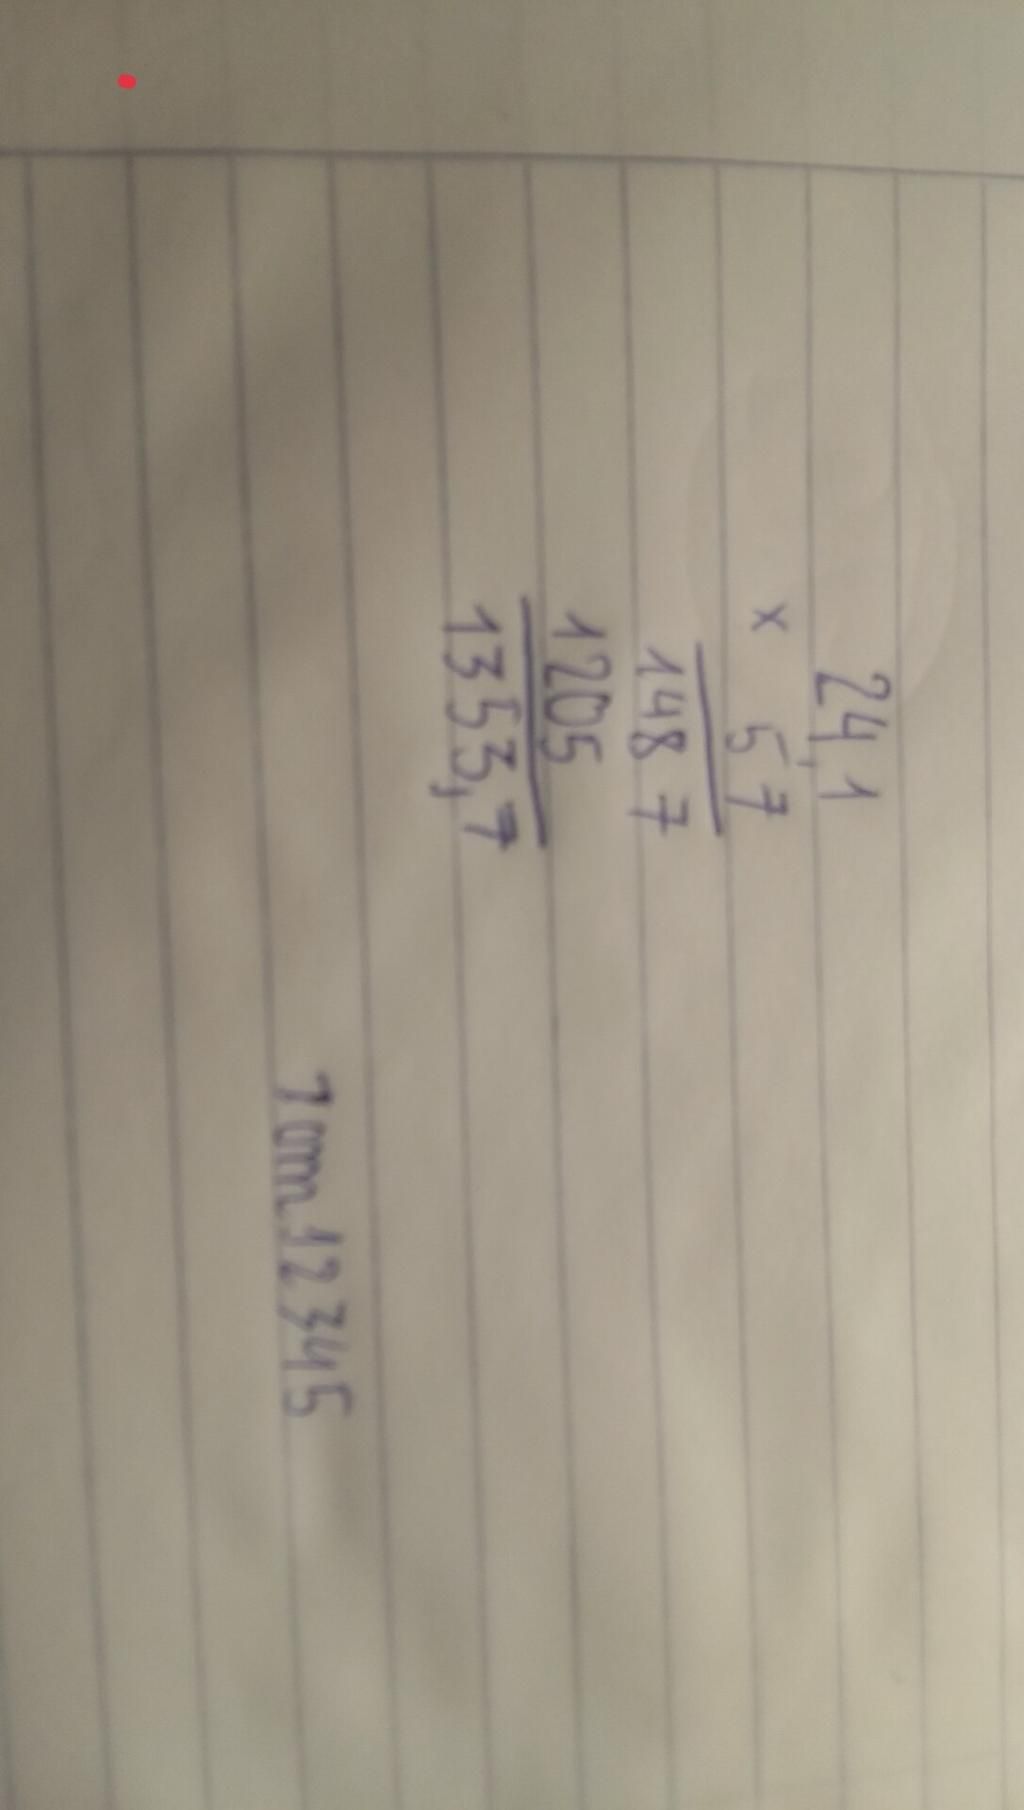 24,1
x 57
1487
1205
1353,7
Tomm12345